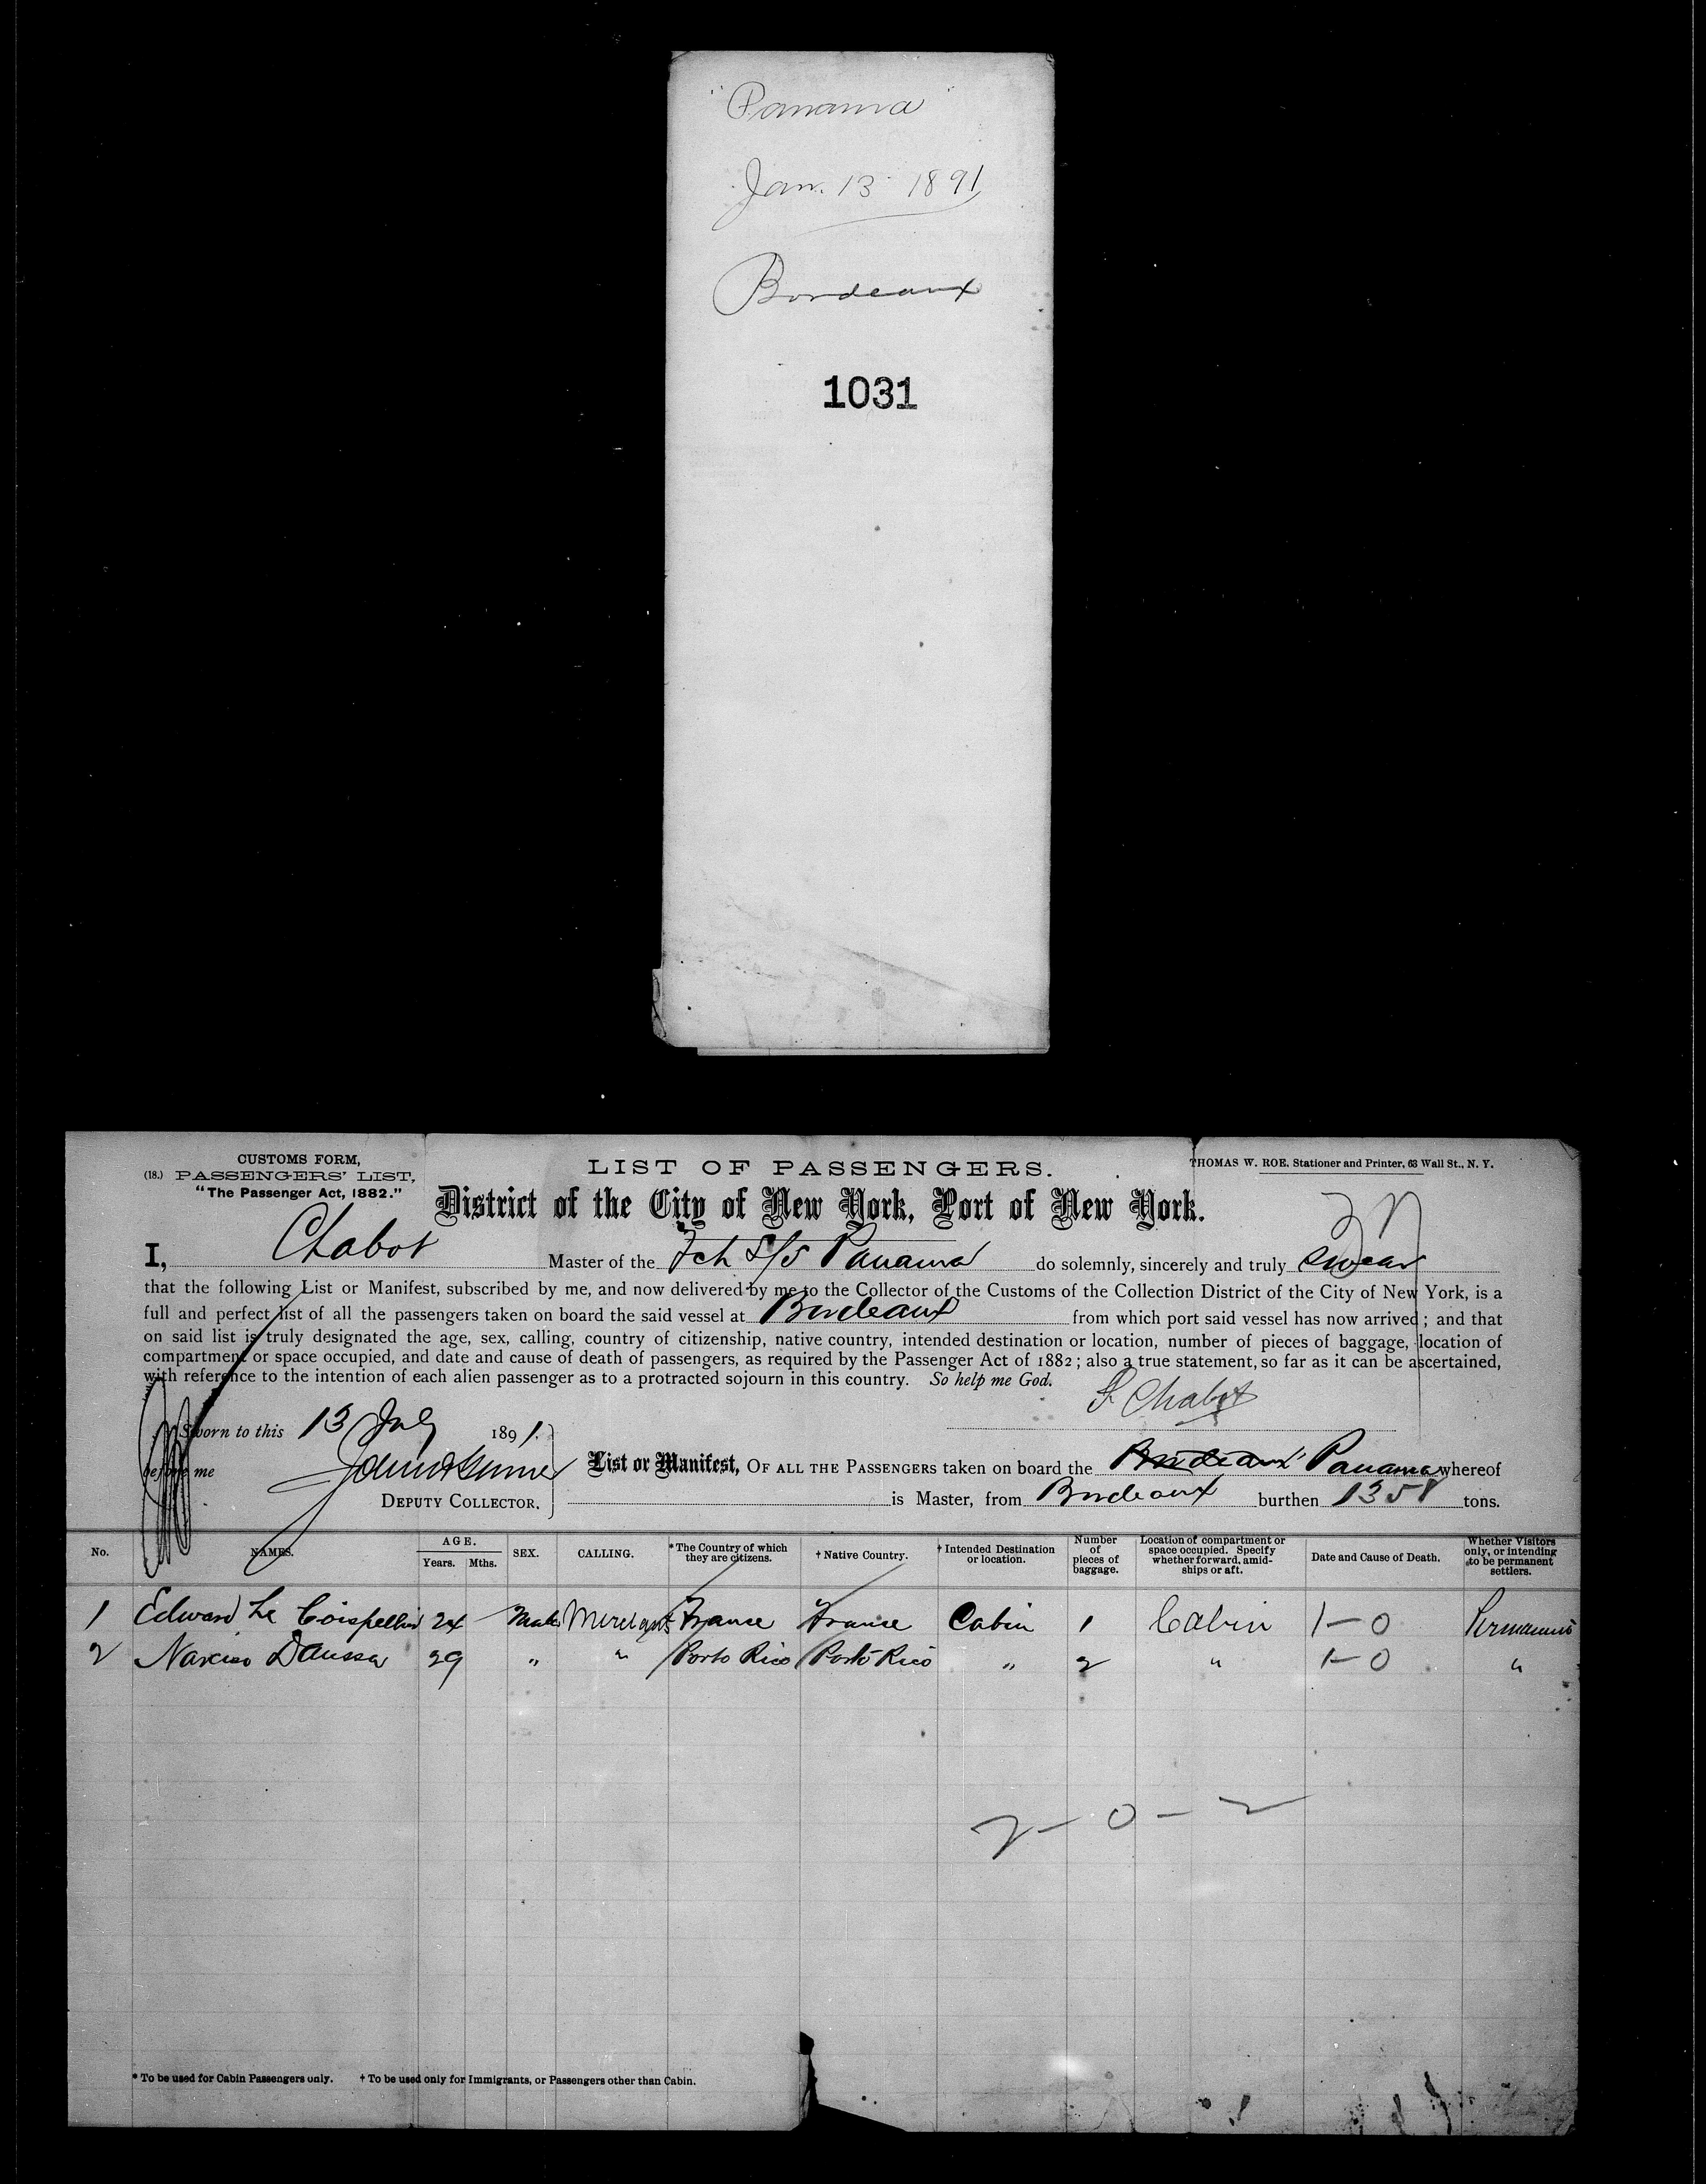 "Panama"
Jan. 13 1891
Bordeaux
1031
CUSTOMS FORM,
(18.) PASSENGERS' LIST,
"The Passenger Act, 1882."
LIST OF PASSENGERS.
THOMAS W. ROE, Stationer and Printer, 63 Wall St., N. Y.
District of the City of New York, Port of New York.
I, Chabot Master of the Fch S/S Panama do solemnly, sincerely and truly swear
that the following List or Manifest, subscribed by me, and now delivered by me to the Collector of the Customs of the Collection District of the City of New York, is a
full and perfect list of all the passengers taken on board the said vessel at Bordeaux from which port said vessel has now arrived; and that
on said list is truly designated the age, sex, calling, country of citizenship, native country, intended destination or location, number of pieces of baggage, location of
compartment or space occupied, and date and cause of death of passengers, as required by the Passenger Act of 1882; also a true statement, so far as it can be ascertained,
with reference to the intention of each alien passenger as to a protracted sojourn in this country. So help me God.
Chabot
Sworn to this 13 1891.
before me
DEPUTY COLLECTOR.
List or Manifest, OF ALL THE PASSENGERS taken on board the Bordeaux Panama whereof
is Master, from Bordeaux burthen 1358 tons.
No. NAMES. AGE. Years. Mths. SEX. CALLING. *The Country of which they are citizens. †Native Country. †Intended Destination or location. Number of pieces of baggage. Location of compartment or space occupied. Specify whether forward, amidships or aft. Date and Cause of Death. Whether Visitors only, or intending to be permanent settlers.
1 Edward Le 24 Male Merchant France France Cabin 1 Cabin 1-0
2 Narciso Daussa 29 " " Porto Rico Porto Rico " 2 " 1-0 "
2-0-2
* To be used for Cabin Passengers only. † To be used only for Immigrants, or Passengers other than Cabin.